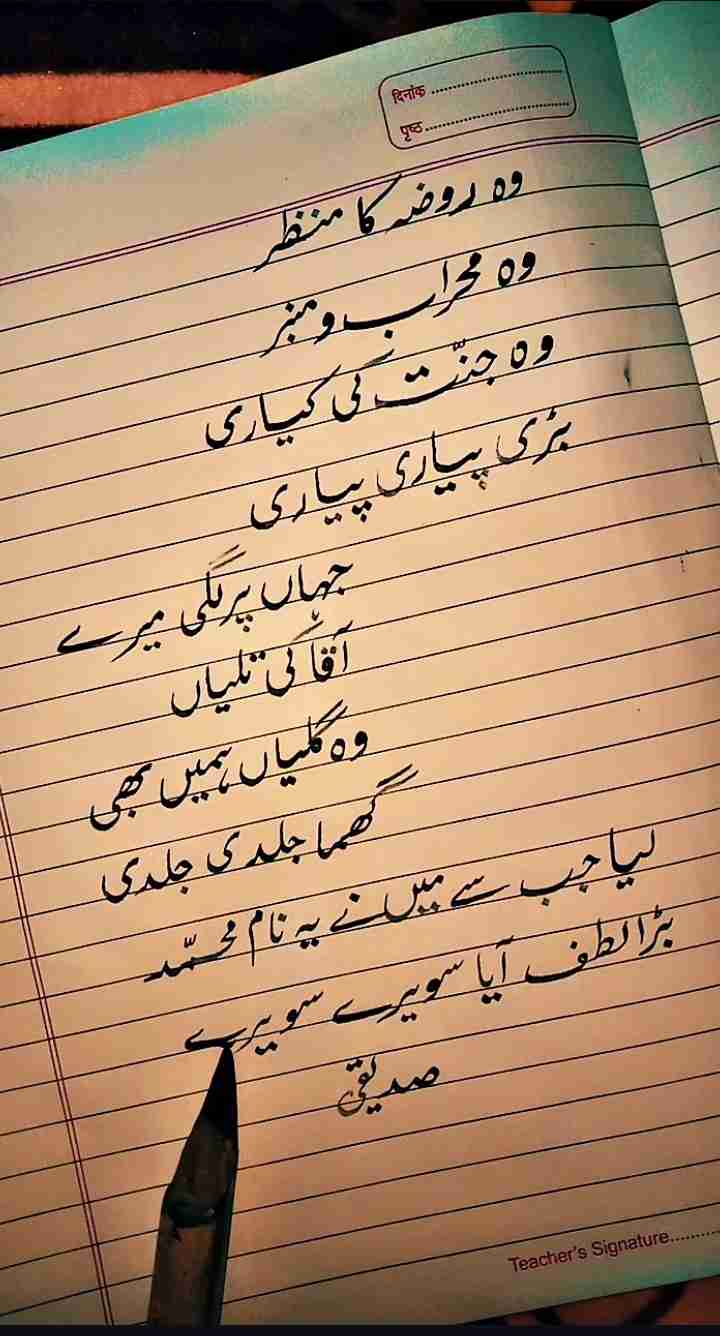 दिनांक
पृष्ठ
وہ روضہ کا منظر
وہ محراب و منبر
وہ جنّت کی کیاری
بڑی پیاری پیاری
جہاں پر لگی میرے
آقا کی تلیاں
وہ گلیاں ہمیں بھی
گھما جلدی جلدی
لیا جب سے میں نے یہ نام محمّد
بڑا لطف آیا سویرے سویرے
صدیقی
Teacher's Signature